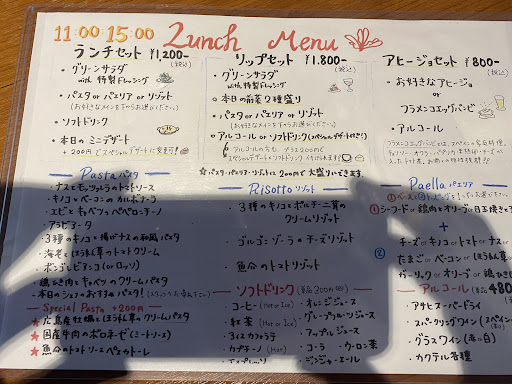 11:00-15:00 Lunch Menu
ランチセット ¥1,200-
(税込)
・グリーンサラダ
with 特製ドレッシング
・パスタ or パエリア or リゾット
(お好きなメインを下からお選びください)
・ソフトドリンク
・本日のミニデザート
リップセット ¥1,800-
(税込)
・グリーンサラダ
with 特製ドレッシング
・本日の前菜2種盛り
・パスタ or パエリア or リゾット
(お好きなメインを下からお選びください)
・アルコール or ソフトドリンク
★パスタ・パエリア・リゾットは200円で大盛りにできます
アヒージョセット ¥800-
(税込)
・お好きなアヒージョ
or
フラメンコエッグパンビ
・アルコール
Pasta パスタ
・ナスとモッツァレラのトマトソース
・キノコとベーコンのカルボナーラ
・エビとキャベツのペペロンチーノ
・アラビアータ
・3種のキノコと揚げナスの和風パスタ
・海老とほうれん草のトマトクリーム
・ボンゴレビアンコ(orロッソ)
・鶏ひき肉とキャベツのクリームパスタ
・本日のシェフのおすすめパスタ!
Special Pasta +200円
★広島産牡蠣とほうれん草のクリームパスタ
★国産牛肉のボロネーゼ(ミートソース)
★魚介のトマトソースペスカトーレ
Risotto リゾット
・3種のキノコとポルチーニ茸の
クリームリゾット
・ゴルゴンゾーラのチーズリゾット
・魚介のトマトリゾット
ソフトドリンク
・コーヒー (Hot or Ice)
・紅茶 (Hot or Ice)
・アイスカフェラテ
・カプチーノ (Hot)
・オレンジジュース
・グレープフルーツジュース
・アップルジュース
・コーラ ・ウーロン茶
・ジンジャーエール
Paella パエリア
①シーフード or 鶏肉とオリーブ or 目玉焼きと
+
②
チーズ or キノコ or トマト or ナス or
たまご or ベーコン or ほうれん草 or
ガーリック or オリーブ or 鶏ひき
アルコール 480
・アサヒスーパードライ
・スパークリングワイン
・グラスワイン (赤 or 白)
・カクテル各種